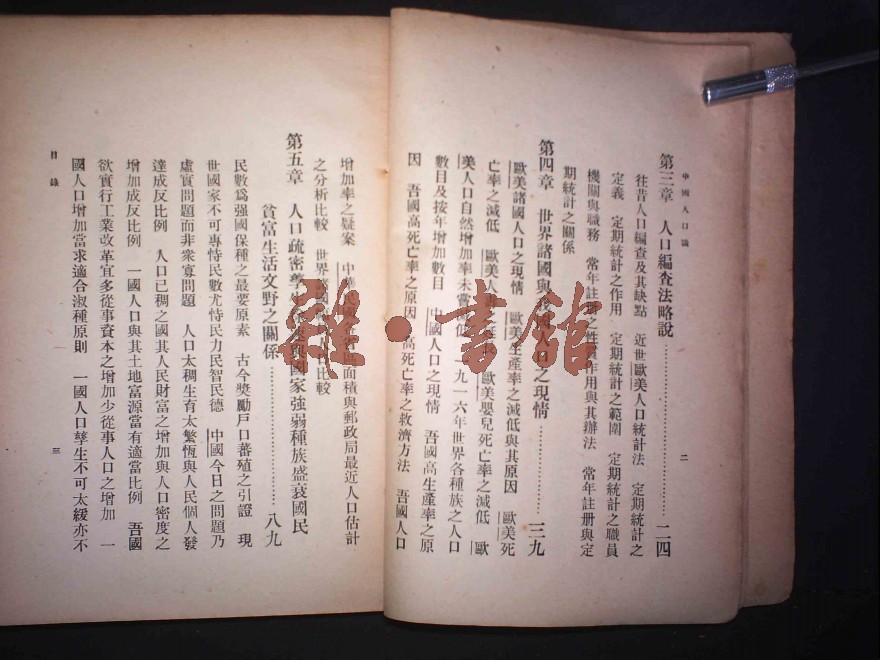 中國人口論
二
第三章　人口編查法略說……二四
往昔人口編查及其缺點　近世歐美人口統計法　定期統計之
定義　定期統計之作用　定期統計之範圍　定期統計之職員
機關與職務　常年註冊之性質作用與其辦法　常年註册與定
期統計之關係
第四章　世界諸國與　國人口之現情……三九
歐美諸國人口之現情　歐美生產率之減低與其原因　歐美死
亡率之減低　歐美人　　歐美嬰兒死亡率之減低　歐
美人口自然增加率未嘗　低　一九一六年世界各種族之人口
數目及按年增加數目　中國人口之現情　吾國高生產率之原
因　吾國高死亡率之原因　高死亡率之救濟方法　吾國人口
增加率之疑案　中華　面積與郵政局最近人口估計
之分析比較　世界　比較
第五章　人口疏密孳生　與國家強弱種族盛衰國民
貧富生活文野之關係……八九
民數爲強國保種之最要原素　古今獎勵戶口蕃殖之引證　現
世國家不可專恃民數尤恃民力民智民德　中國今日之問題乃
虛實問題而非衆寡問題　人口太稠生育太繁恆與人民個人發
達成反比例　人口已稠之國其人民財富之增加與人口密度之
增加成反比例　一國人口與其土地富源當有適當比例　吾國
欲實行工業改革宜多從事資本之增加少從事人口之增加　一
國人口增加當求適合淑種原則　一國人口孳生不可太緩亦不
目錄
三
雜·書館